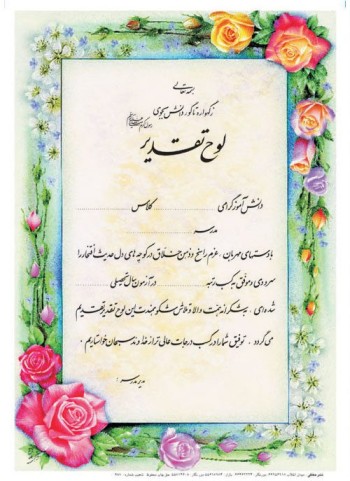 بسمه تعالی
ز گهواره تا گور دانش بجوی
لوح تقدیر
دانش آموز گرامی ........ کلاس ........
مدرسه ........
با دستهای مهربان، عزم راسخ و ذهن خلاق در کوچه های دل حدیث افتخار را
سروده ای و موفق به کسب رتبه ........ در آزمون سال تحصیلی ........
شده ای. به شکرانه همت والا و تلاش شکوهمندت این لوح تقدیر تقدیم
می گردد. توفیق شما را در کسب درجات عالی تر از خداوند سبحان خواستاریم.
مدیر مدرسه: